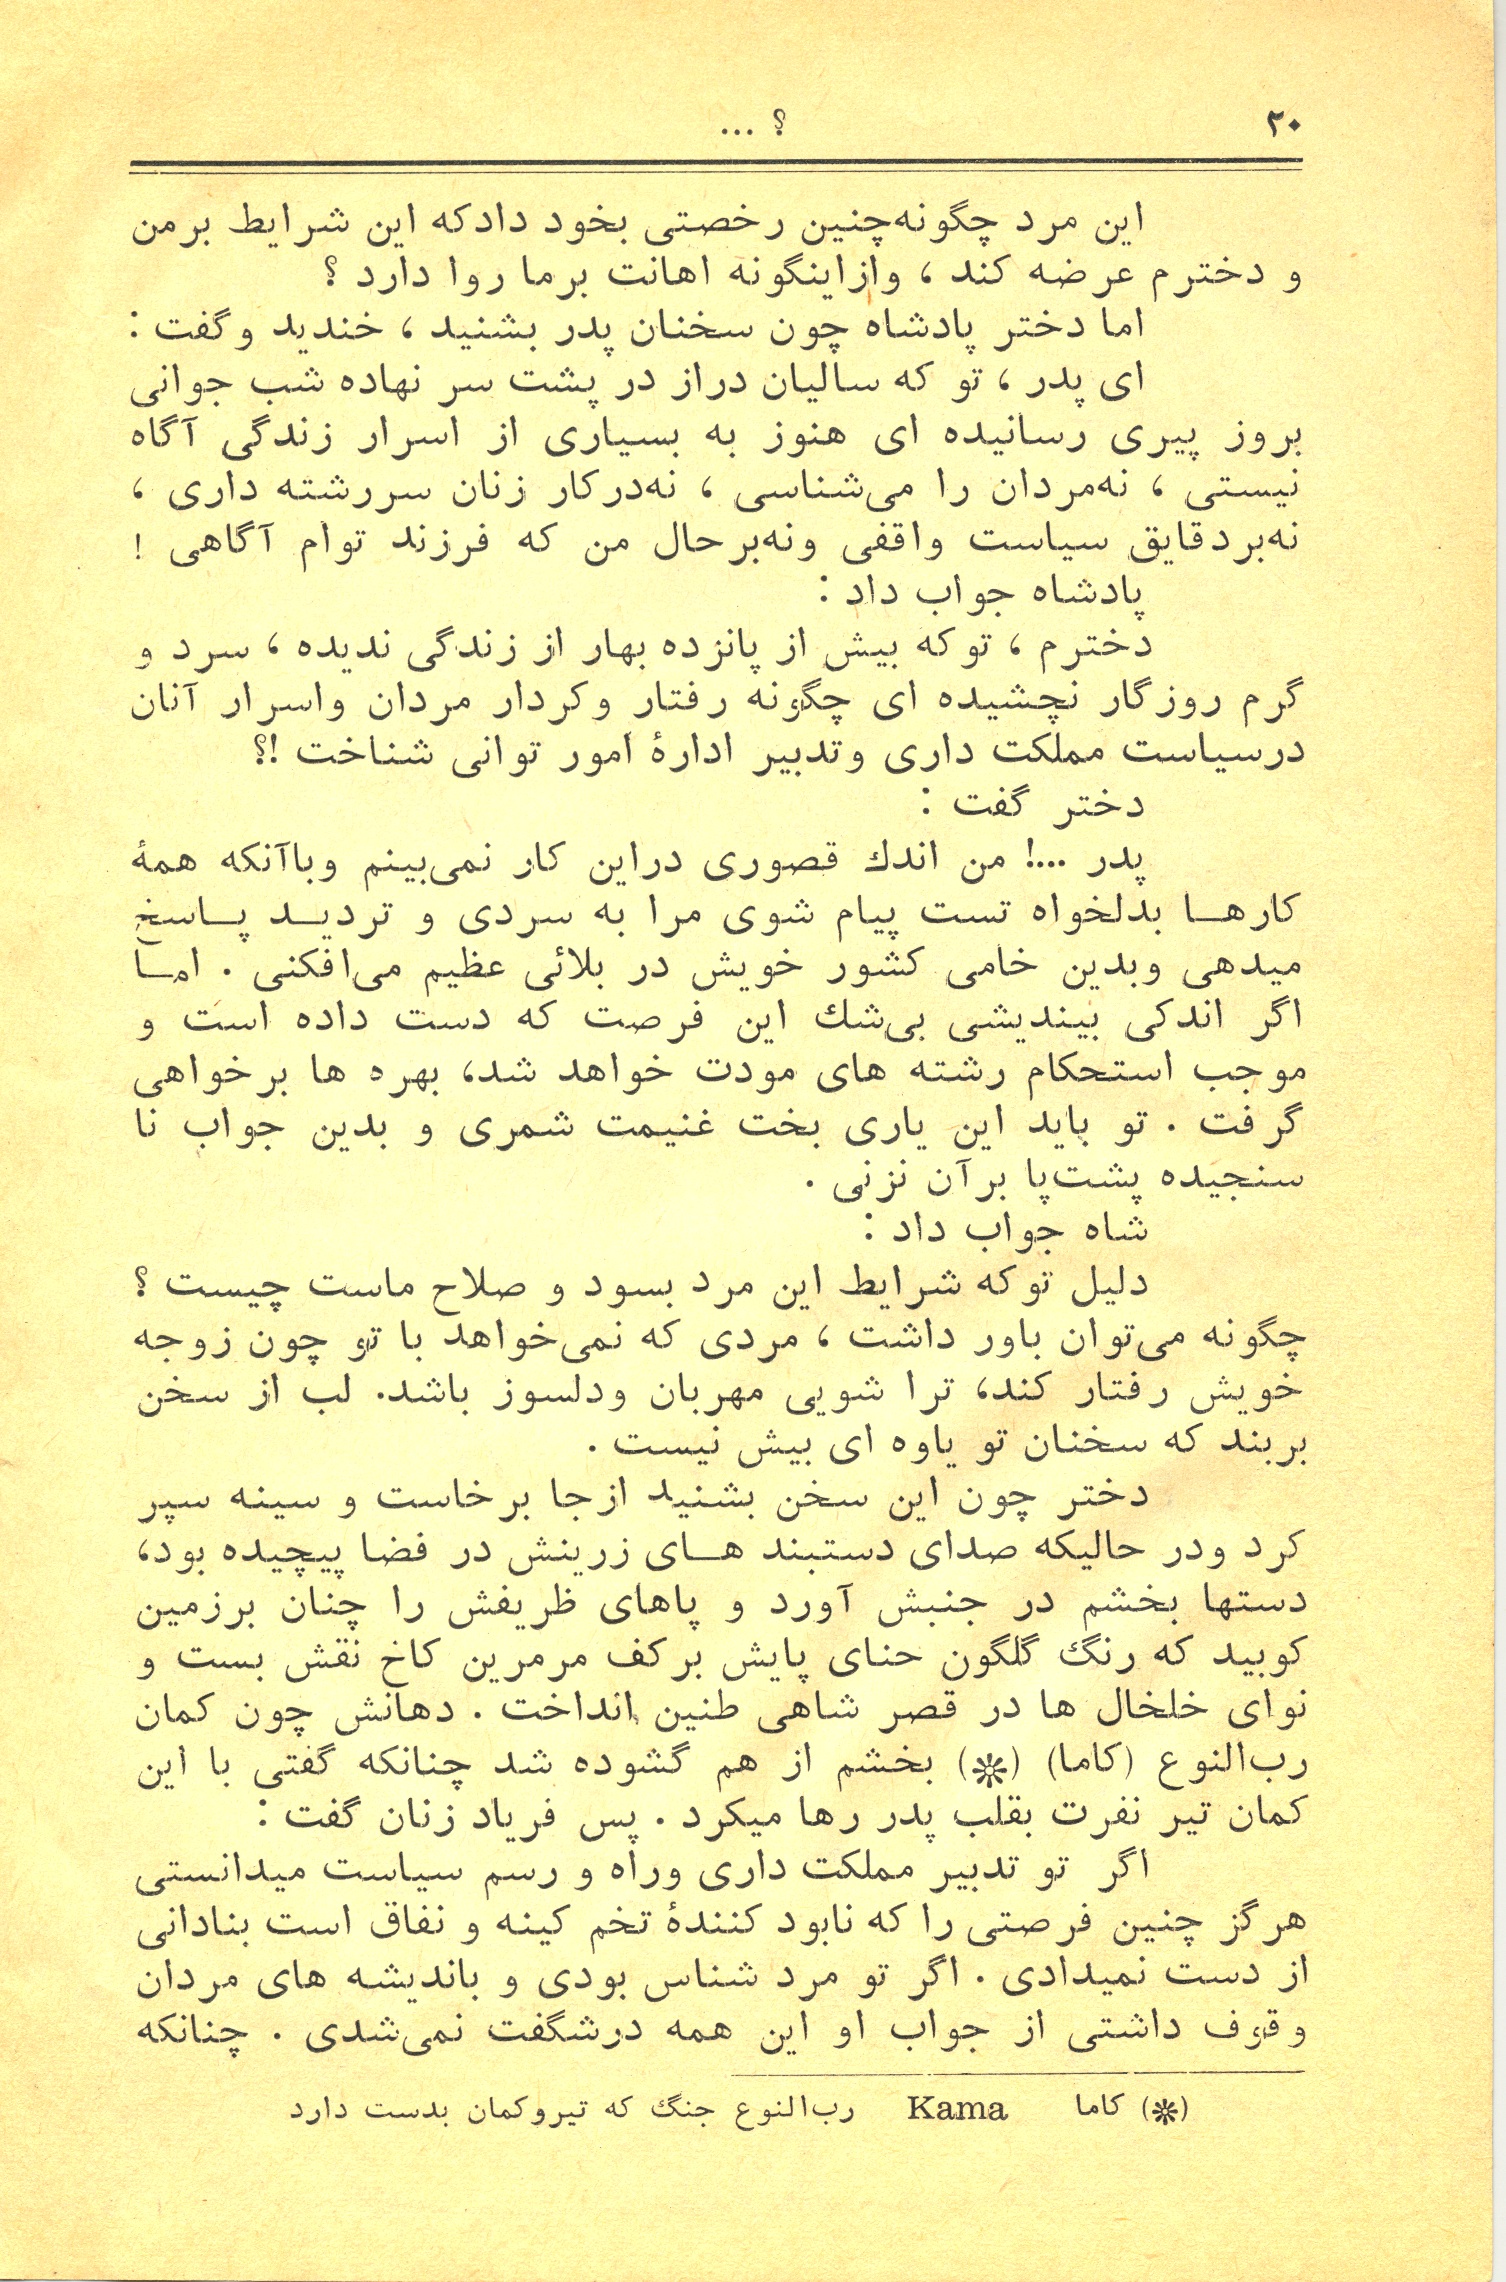 ۲۰
؟ ...
این مرد چگونه‌چنین رخصتی بخود دادکه این شرایط برمن
و دخترم عرضه کند ، وازاینگونه اهانت برما روا دارد ؟
اما دختر پادشاه چون سخنان پدر بشنید ، خندید وگفت :
ای پدر ، تو که سالیان دراز در پشت سر نهاده شب جوانی
بروز پیری رسانیده ای هنوز به بسیاری از اسرار زندگی آگاه
نیستی ، نه‌مردان را می‌شناسی ، نه‌درکار زنان سررشته داری ،
نه‌بردقایق سیاست واقفی ونه‌برحال من که فرزند توام آگاهی !
پادشاه جواب داد :
دخترم ، توکه بیش از پانزده بهار از زندگی ندیده ، سرد و
گرم روزگار نچشیده ای چگونه رفتار وکردار مردان واسرار آنان
درسیاست مملکت داری وتدبیر ادارهٔ امور توانی شناخت !؟
دختر گفت :
پدر ...! من اندك قصوری دراین کار نمی‌بینم وباآنکه همهٔ
کارهــا بدلخواه تست پیام شوی مرا به سردی و تردیــد پــاسخ
میدهی وبدین خامی کشور خویش در بلائی عظیم می‌افکنی . امــا
اگر اندکی بیندیشی بی‌شك این فرصت که دست داده است و
موجب استحکام رشته های مودت خواهد شد، بهره ها برخواهی
گرفت . تو باید این یاری بخت غنیمت شمری و بدین جواب نا
سنجیده پشت‌پا برآن نزنی .
شاه جواب داد :
دلیل توکه شرایط این مرد بسود و صلاح ماست چیست ؟
چگونه می‌توان باور داشت ، مردی که نمی‌خواهد با تو چون زوجه
خویش رفتار کند، ترا شویی مهربان ودلسوز باشد. لب از سخن
بربند که سخنان تو یاوه ای بیش نیست .
دختر چون این سخن بشنید ازجا برخاست و سینه سپر
کرد ودر حالیکه صدای دستبند هــای زرینش در فضا پیچیده بود،
دستها بخشم در جنبش آورد و پاهای ظریفش را چنان برزمین
کوبید که رنگ گلگون حنای پایش برکف مرمرین کاخ نقش بست و
نوای خلخال ها در قصر شاهی طنین انداخت . دهانش چون کمان
رب‌النوع (کاما) (❊) بخشم از هم گشوده شد چنانکه گفتی با این
کمان تیر نفرت بقلب پدر رها میکرد . پس فریاد زنان گفت :
اگر تو تدبیر مملکت داری وراه و رسم سیاست میدانستی
هرگز چنین فرصتی را که نابود کنندهٔ تخم کینه و نفاق است بنادانی
از دست نمیدادی . اگر تو مرد شناس بودی و باندیشه های مردان
وقوف داشتی از جواب او این همه درشگفت نمی‌شدی . چنانکه
(❊) کاما Kama رب‌النوع جنگ که تیروکمان بدست دارد